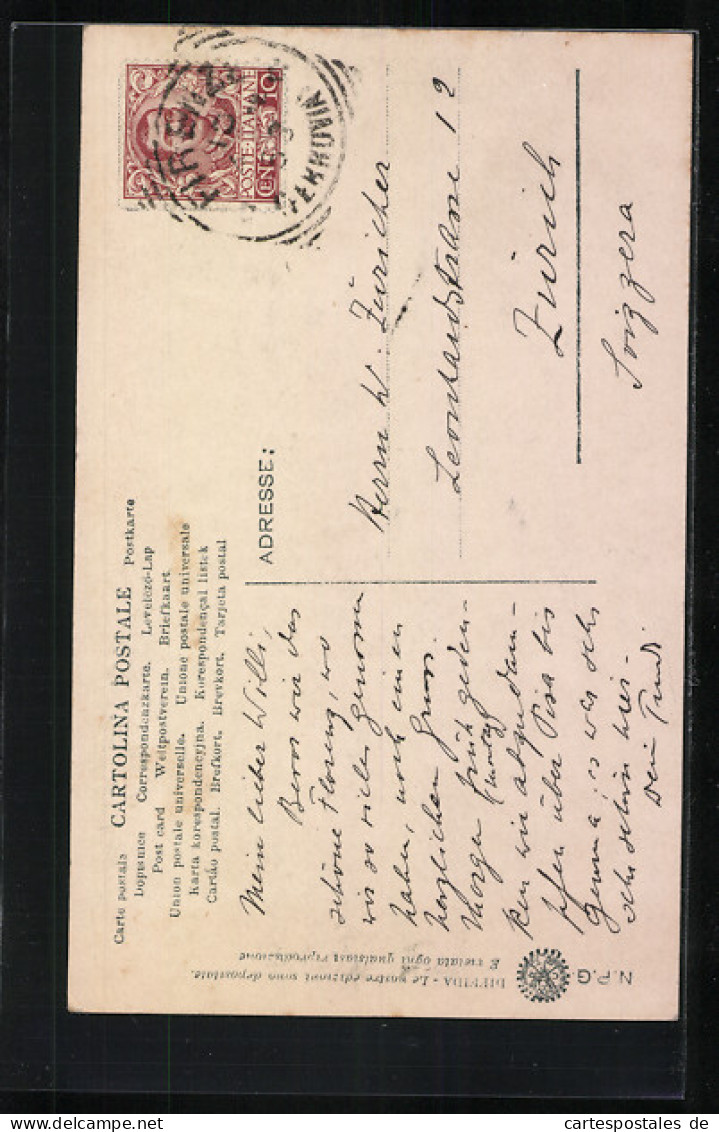 Carte postale CARTOLINA POSTALE Postkarte
Dopisnice Correspondenzkarte. Levelező-Lap
Post card Weltpostverein. Briefkaart
Union postale universelle. Unione postale universale
Karta korespondencyjna. Korespondenčal listek
Cartão postal. Brefkort. Brevkort. Tarjeta postal
ADRESSE:
Herrn W. Züricher
Leonhardstrasse 12
Zürich
Svizzera
Mein lieber Willi,
Bevor wir das
schöne Florenz, wo
wir so vieles genossen
haben, noch einen
herzlichen Gruss.
Morgen früh geden-
(Montag)
ken wir abzudam-
pfen über Pisa bis
Genua. Es war sehr
sehr schön hier.
Dein
DIFFIDA - Le nostre edizioni sono depositate.
E vietata ogni qualsiasi riproduzione
N.P.G.
POSTE ITALIANE
CENT. 10
FIRENZE
FERROVIA
www.cartespostales.eu
cartespostales de